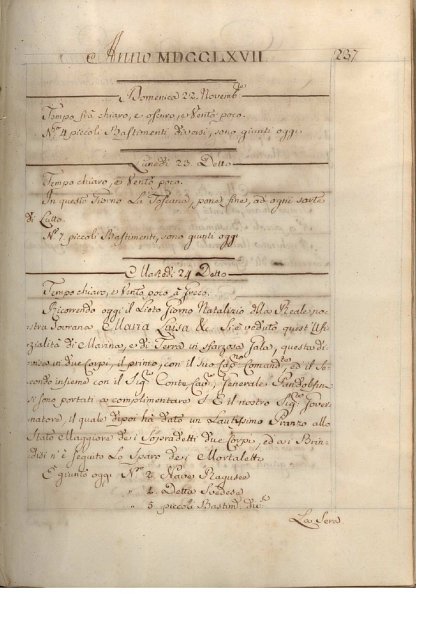 Anno MDCCLXVII. 237
Domenica 22. Novemb.
Tempo frà chiaro, e oscuro, e Vento poco.
N.º 4 piccoli Bastimenti diversi, sono giunti oggi.
Lunedì 23. Detto
Tempo chiaro, e Vento poco.
In questo Giorno La Toscana, pone fine, ad ogni sorte
di Lutto.
N.º 7 piccoli Bastimenti, sono giunti oggi
Martedì 24 Detto
Tempo chiaro, e Vento poco à Greco.
Ricorrendo oggi il Lieto Giorno Natalizio della Reale no-
stra Sovrana Maria Luisa &c. Si è veduto quest' Uffi-
zialità di Marina, e di Terra in sfarzosa Gala, questa di-
visa in due Corpi, il primo, con il suo Comand.te ed il Se-
condo insieme con il Sig.r Conte Generale
si sono portati a complimentare S. E. il nostro Sig.r Gover-
natore, il quale dipoi hà dato un Lautissimo Pranzo allo
Stato Maggiore dei Sopradetti due Corpi, ed ai Brin-
disi n'è seguito Lo Sparo dei Mortaletti
E' giunto oggi N.º 2. Nave Ragusea
" 1. Detta Svedese
" 5. piccoli Bastim.
La Sera